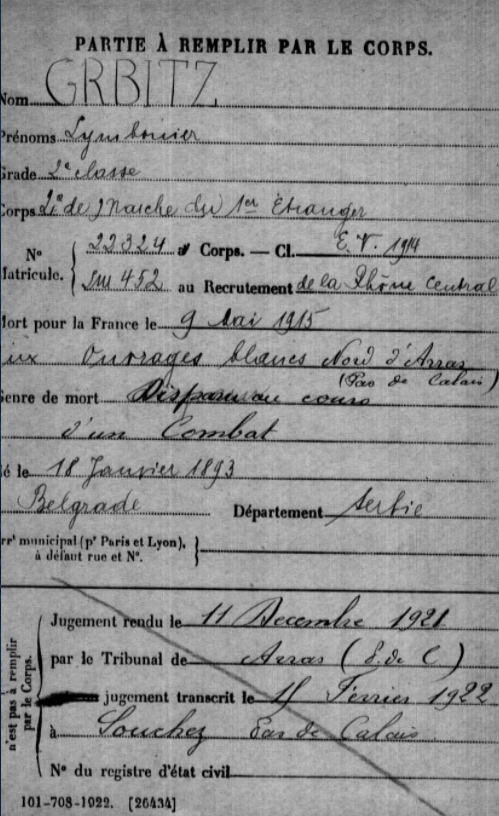 PARTIE À REMPLIR PAR LE CORPS.
Nom GRBITZ
Prénoms
Grade 2e classe
Corps 2e de Marche du 1er Étranger
No Matricule. 22324 Corps. — Cl. E.V. 1914
SM 452 au Recrutement de la Rhône Central
Mort pour la France le 9 Mai 1915
aux Ouvrages blancs Nord d'Arras
(Pas de Calais)
Genre de mort Disparu au cours
d'un Combat
Né le 18 Janvier 1893
Belgrade Département Serbie
arrt municipal (pr Paris et Lyon),
à défaut rue et No.
n'est pas à remplir par le Corps.
Jugement rendu le 11 Decembre 1921
par le Tribunal de Arras (P. de C)
jugement transcrit le Février 1922
à Souchez Pas de Calais
No du registre d'état civil
101-708-1922. [26434]